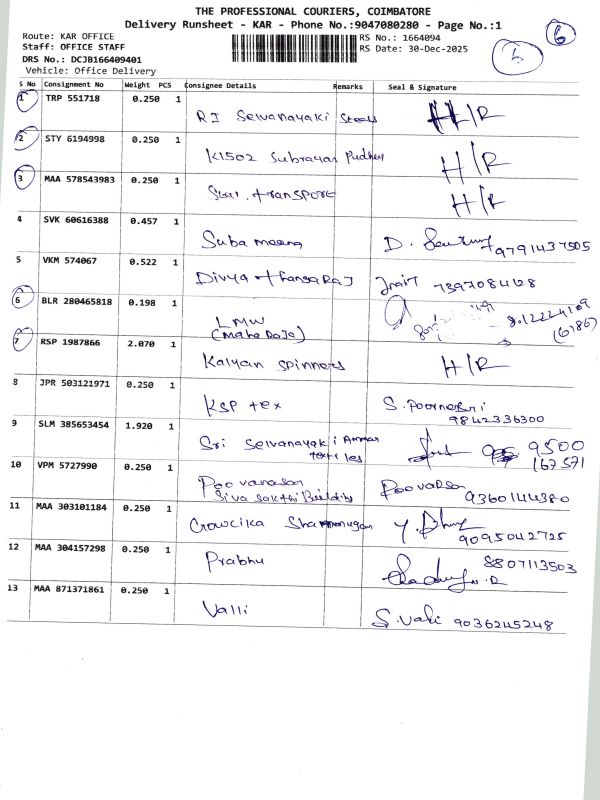 THE PROFESSIONAL COURIERS, COIMBATORE
Delivery Runsheet - KAR - Phone No.:9047080280 - Page No.:1
6
Route: KAR OFFICE
Staff: OFFICE STAFF
DRS No.: DCJB166409401
Vehicle: Office Delivery
RS No.: 1664094
RS Date: 30-Dec-2025
S No Consignment No Weight PCS Consignee Details Remarks Seal & Signature
1 TRP 551718 0.250 1
RJ Selvanayaki Steels H/R
2 STY 6194998 0.250 1
K1502 Subrayan Pudhur H/R
3 MAA 578543983 0.250 1
Star transport H/R
4 SVK 60616388 0.457 1
Suba meena D. 9791437505
5 VKM 574067 0.522 1
Divya thangaraj 7397084128
6 BLR 280465818 0.198 1
LMW
(Maharaja) (6786)
7 RSP 1987866 2.070 1
Kalyan spinners H/R
8 JPR 503121971 0.250 1
KSP tex S. Poorneswri
9842336300
9 SLM 385653454 1.920 1
Sri Selvanayaki Amman
textiles 9500
167571
10 VPM 5727990 0.250 1
Poovarasan
Siva Sakthi Building Poovarsan
9360144380
11 MAA 303101184 0.250 1
Gowcika Shanmugan
9095042725
12 MAA 304157298 0.250 1
Prabhu 8807113503
13 MAA 871371861 0.250 1
Valli S. Valli 9036245248